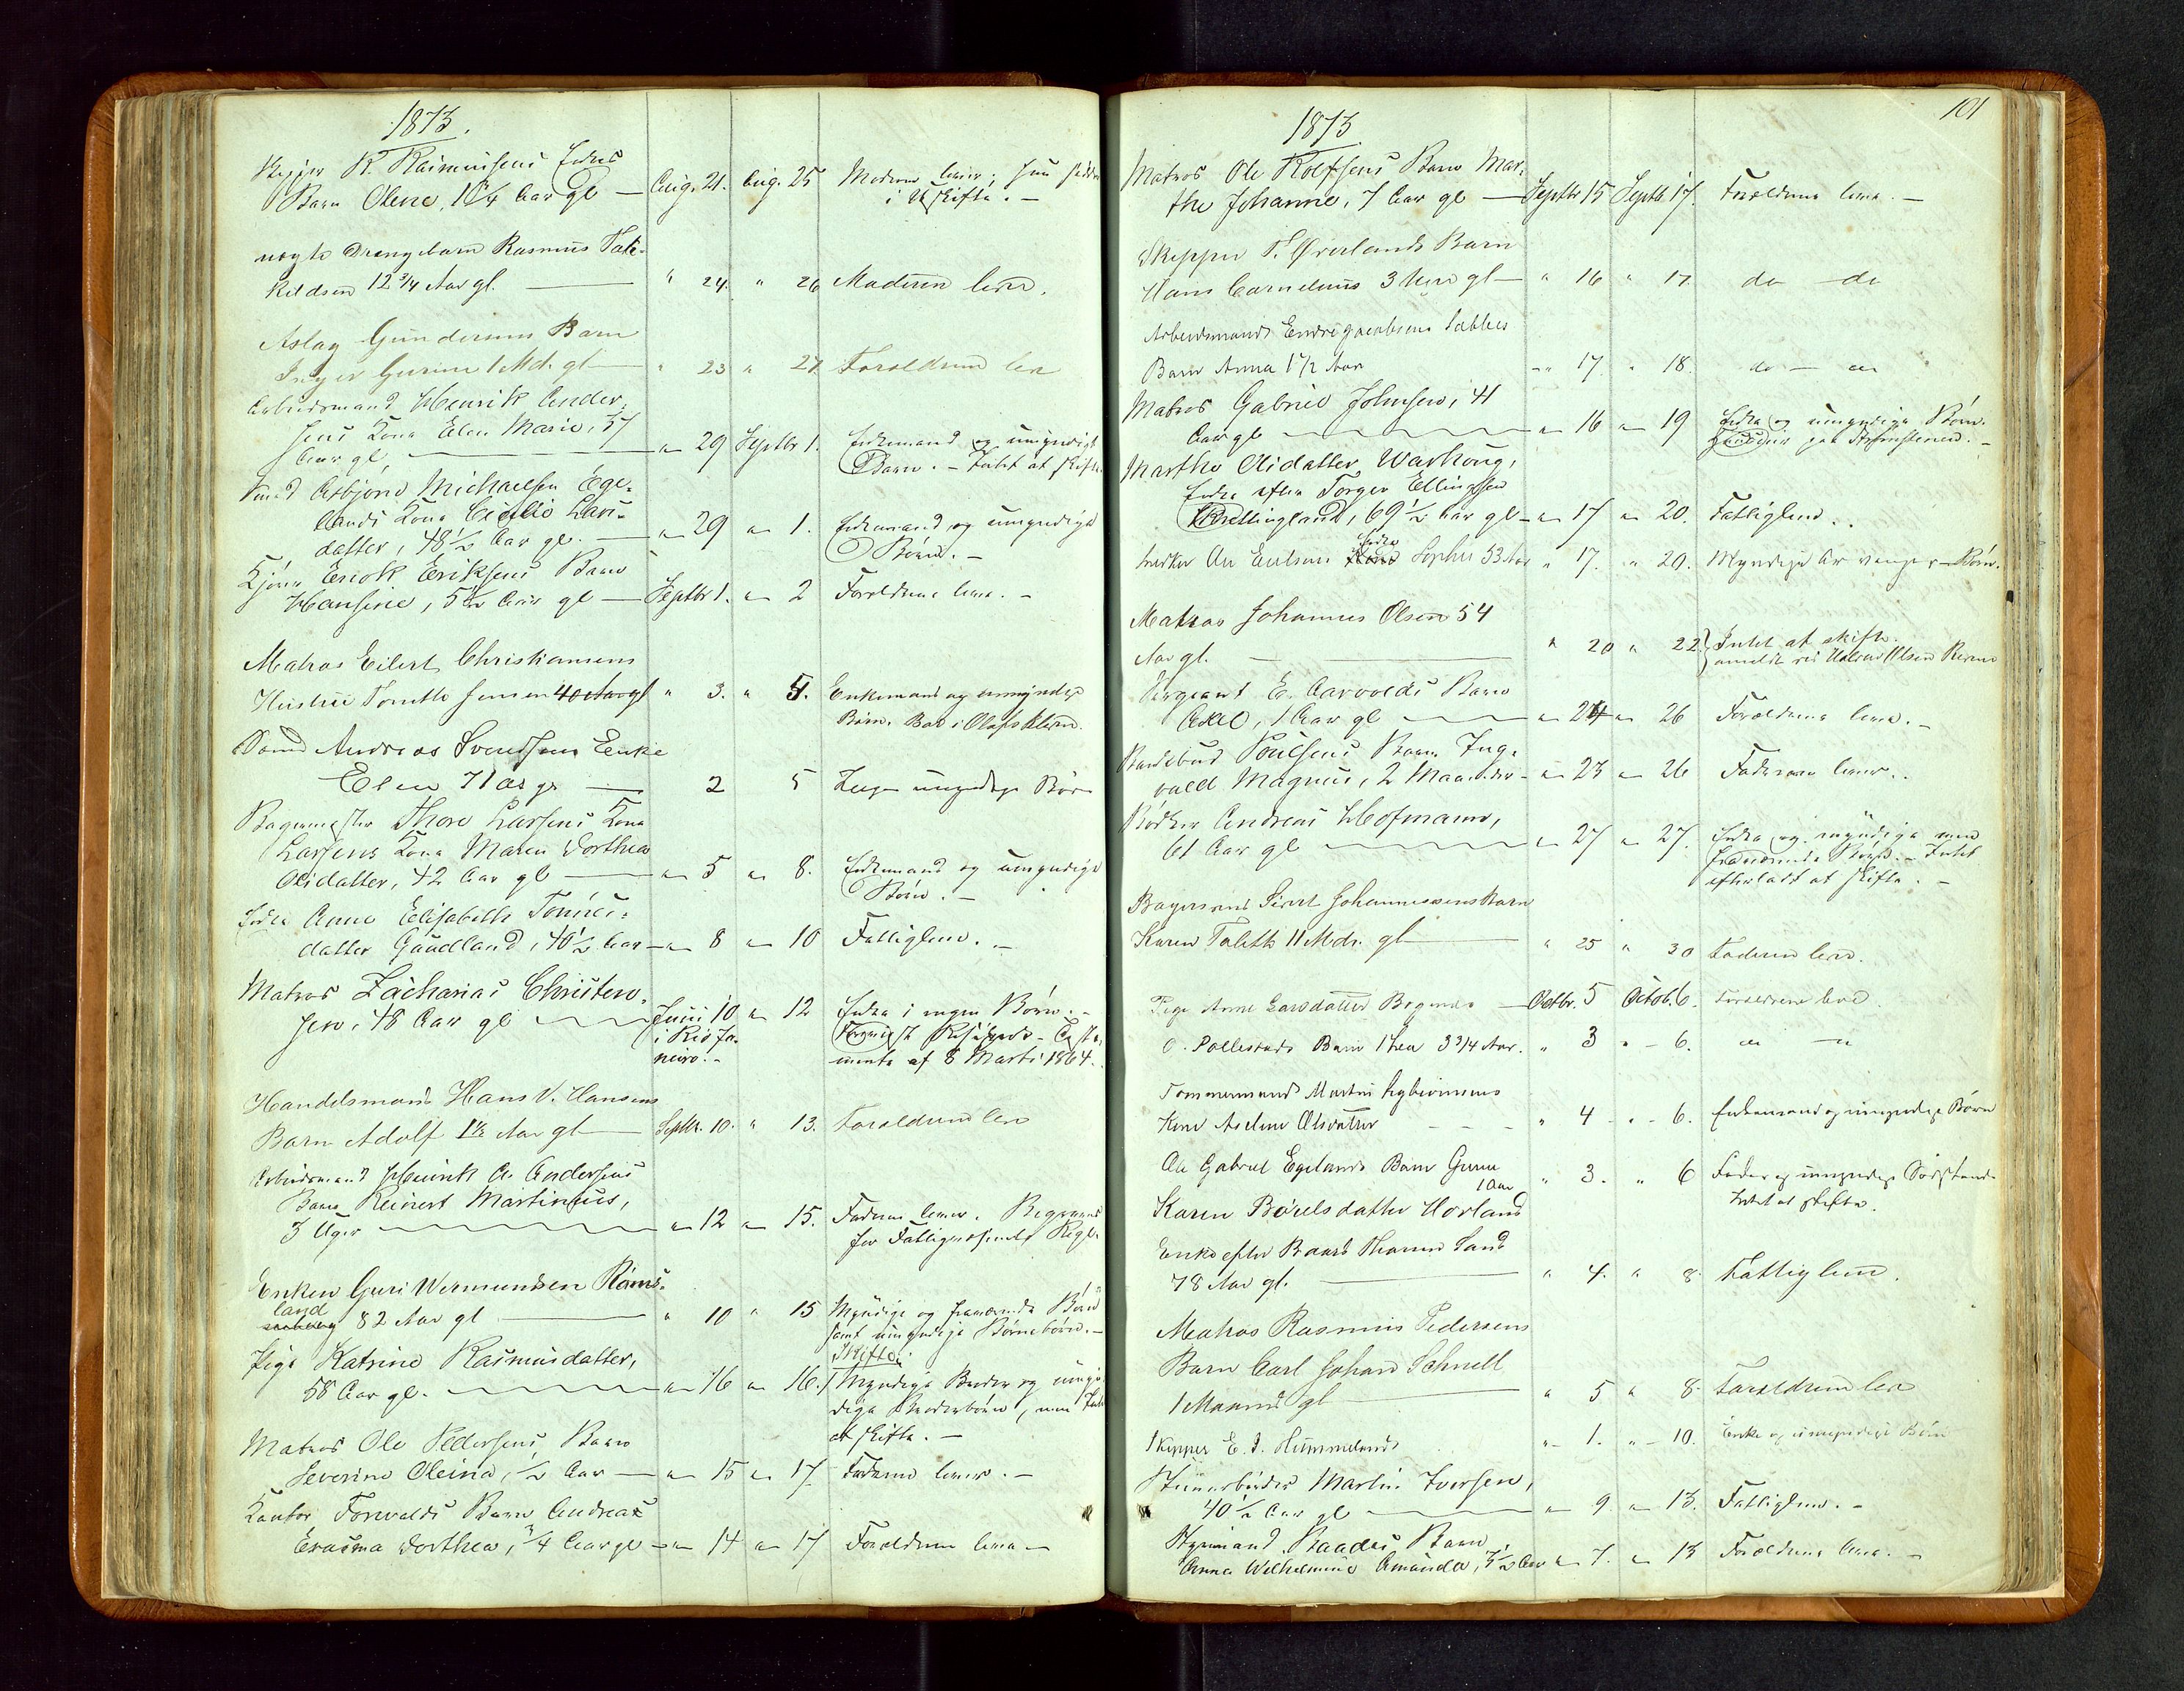 1873.
Skipper R. Rasmussens Enkes
Barn Olene, 1¼ Aar gl — Aug. 21. Aug. 25 Moderen lever; hun sidder
i Uskifte. —
Drengebarn Rasmus Tar-
kildsen 12 3/4 Aar gl. — " 24. " 26 Moderen lever.
Aslag Gundersens Barn
Inger Gurine 1 Md. gl — " 23 " 27 Forældrene lev
Arbeidsmand Henrik Ander-
sens Kone Elen Marie, 57
Aar gl, — " 29 Septbr 1. Enkemand og umyndigt
Barn. — Intet at skifte
Asbjørn Michaelsen Ege-
lands Kone Cecilie Lars-
datter, 48½ Aar gl. — " 29 " 1. Enkemand og umyndige
Børn. —
Eriksens Barn
Hansine, 5½ Aar gl — Septbr 1. " 2 Forældrene lever. —
Matros Eilert Christiansens
Hustru Tomette Jensen 40 Aar gl " 3. " 5. Enkemand og umyndige
Børn. Boe i Olafskleven.
Andreas Svendsens Enke
Elen 71 aar gl — 2 5 Ingen umyndige Børn
Bagermester Thore Larsens Kone
Larsens Kone Maren Dorthea
Olsdatter, 42 Aar gl — " 5 " 8. Enkemand og umyndige
Børn. —
Enke Anne Elisabeth Tønnes-
datter Gaudland, 40½ Aar — " 8 " 10 Fattiglem. —
Matros Zacharias Christen-
sen, 48 Aar gl — Juni 10 " 12 Enke i ingen Børn. —
i Rio Ja-
neiro. — Testa-
mente af 8 Marts 1864.
Handelsmand Hans V. Hansens
Barn Adolf 1½ Aar gl — Septbr. 10. " 13. Forældrene lev
Arbeidsmand Henrik A. Andersens
Barn Reinert Martinius,
3 Uger — " 12 " 15. Faderen lever. Begraves
for Fattigvæsenets Regl.
Enken Guri Wermundsen Rams-
land
82 Aar gl — " 10 " 15 Myndige og fraværende Børn
samt umyndige Børnebørn. —
Skifte.
Pige Katrine Rasmusdatter,
58 Aar gl. — " 16 " 16. Myndige Brødre og umyn-
dige Broderbørn, men Intet
at skifte. —
Matros Ole Pedersens Barn
Severine Oleina, ½ Aar — " 15 " 17. Faderen lever. —
Kantor Torvalds Barn Andreas
Erasma Dorthea, 3/4 Aar gl — " 14 " 17 Forældrene lever —
101
1873
Matros Ole Rolfsens Barn Mar-
the Johanne, 7 Aar gl — Septbr 15 Septb. 17. Forældrene lever. —
Skipper T. Øverlands Barn
Hans Cornelius 3 Uger gl — " 16 " 17. do — do
Arbeidsmand Endre Jacobsens
Barn Anna 1½ Aar — " 17. " 18. do — do
Matros Gabriel Johnsen, 41
Aar gl — " 16 " 19 Enke og umyndige Børn.
Marthe Olsdatter Warhoug,
Enke efter Torger Ellingsen
Brettingland, 69½ Aar gl — " 17 " 20. Fattiglem.
Enke
Sophie 53 Aar " 17. " 20. Myndige Børn.
Matros Johannes Olsen 54
Aar gl. — " 20 " 22. Intet at skifte.
anmeldt ved Halvor Olsen
Sergeant E. Aarvolds Barn
Axel, 1 Aar gl — " 24 " 26 Forældrene lever. —
Poulsens Barn Ing-
vald Magnus, 2 Maaneder — " 23 " 26 Faderen lever.
Bødker Andreas Hofmann,
61 Aar gl — " 27 " 27. Enke og myndige men
fraværende Børn. — Intet
efterladt at skifte. —
Bagersvend Sivert Johannessens Barn
Karen Talette 11 Mdr. gl — " 25 " 30 Faderen lever.
Pige Anne Larsdatter — Octbr. 5 Octob. 6. Forældrene lever.
O. Pollestads Barn Thea 3 3/4 Aar. " 3 " — 6. " — "
Tømmermand Martin Asbiørnsens
Kone Aselene Olsdatter — " 4 " — 6. Enkemand og umyndige Børn
Ole Gabriel Egelands Barn Gurine
1 Aar " 3. " 6 Fader og umyndige Sødskende
Intet at skifte.
Karen Børelsdatter Hovland
Enke efter Baard Sand
78 Aar gl. — " 4. " 8. Fattiglem.
Matros Rasmus Pedersens
Barn Carl Johan Schnell
1 Maaned gl — " 5 " 8. Forældrene lev
Skipper E. J. Hummelands " — 1. " — 10. Enke og umyndige Børn
Martin Iversen,
40½ Aar gl — " 9. " 13. Fattiglem. —
Styrmand Baades Barn
Anna Wilhelmine Amanda, 3½ Aar " 7. " 13 Forældrene lever. —